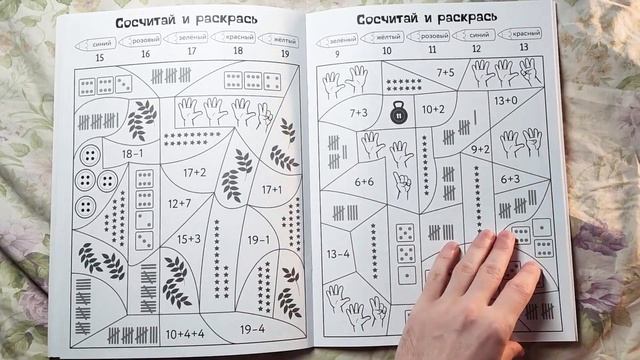 Сосчитай и раскрась
синий розовый зелёный красный жёлтый
15 16 17 18 19
18−1
17+2
17+1
12+7
15+3
19−1
10+4+4
19−4
Сосчитай и раскрась
зелёный жёлтый розовый синий красный
9 10 11 12 13
7+5
7+3
11
10+2
13+0
9+2
6+6
6+3
13−4